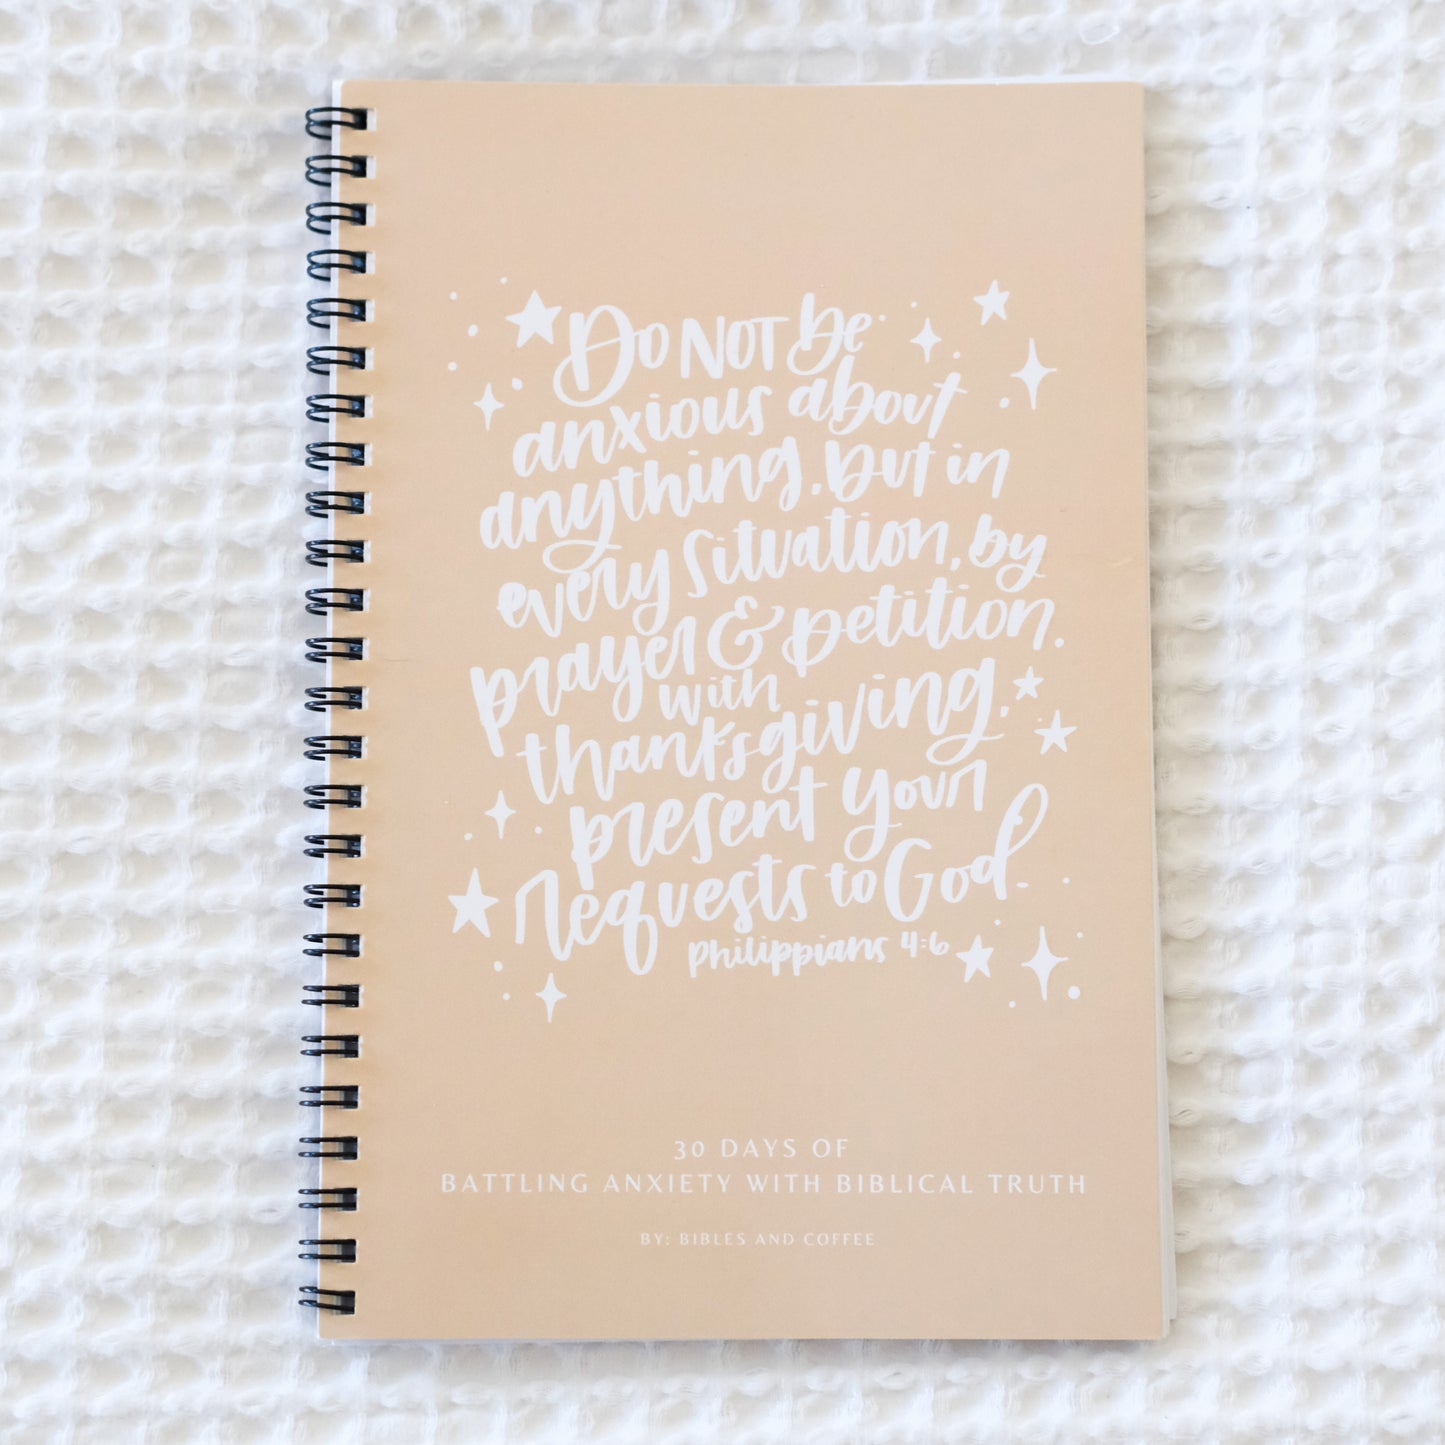 Do NOT be
anxious about
anything, but in
every situation, by
prayer & petition,
with
thanksgiving,
present your
requests to God.
Philippians 4:6
30 DAYS OF
BATTLING ANXIETY WITH BIBLICAL TRUTH
BY: BIBLES AND COFFEE